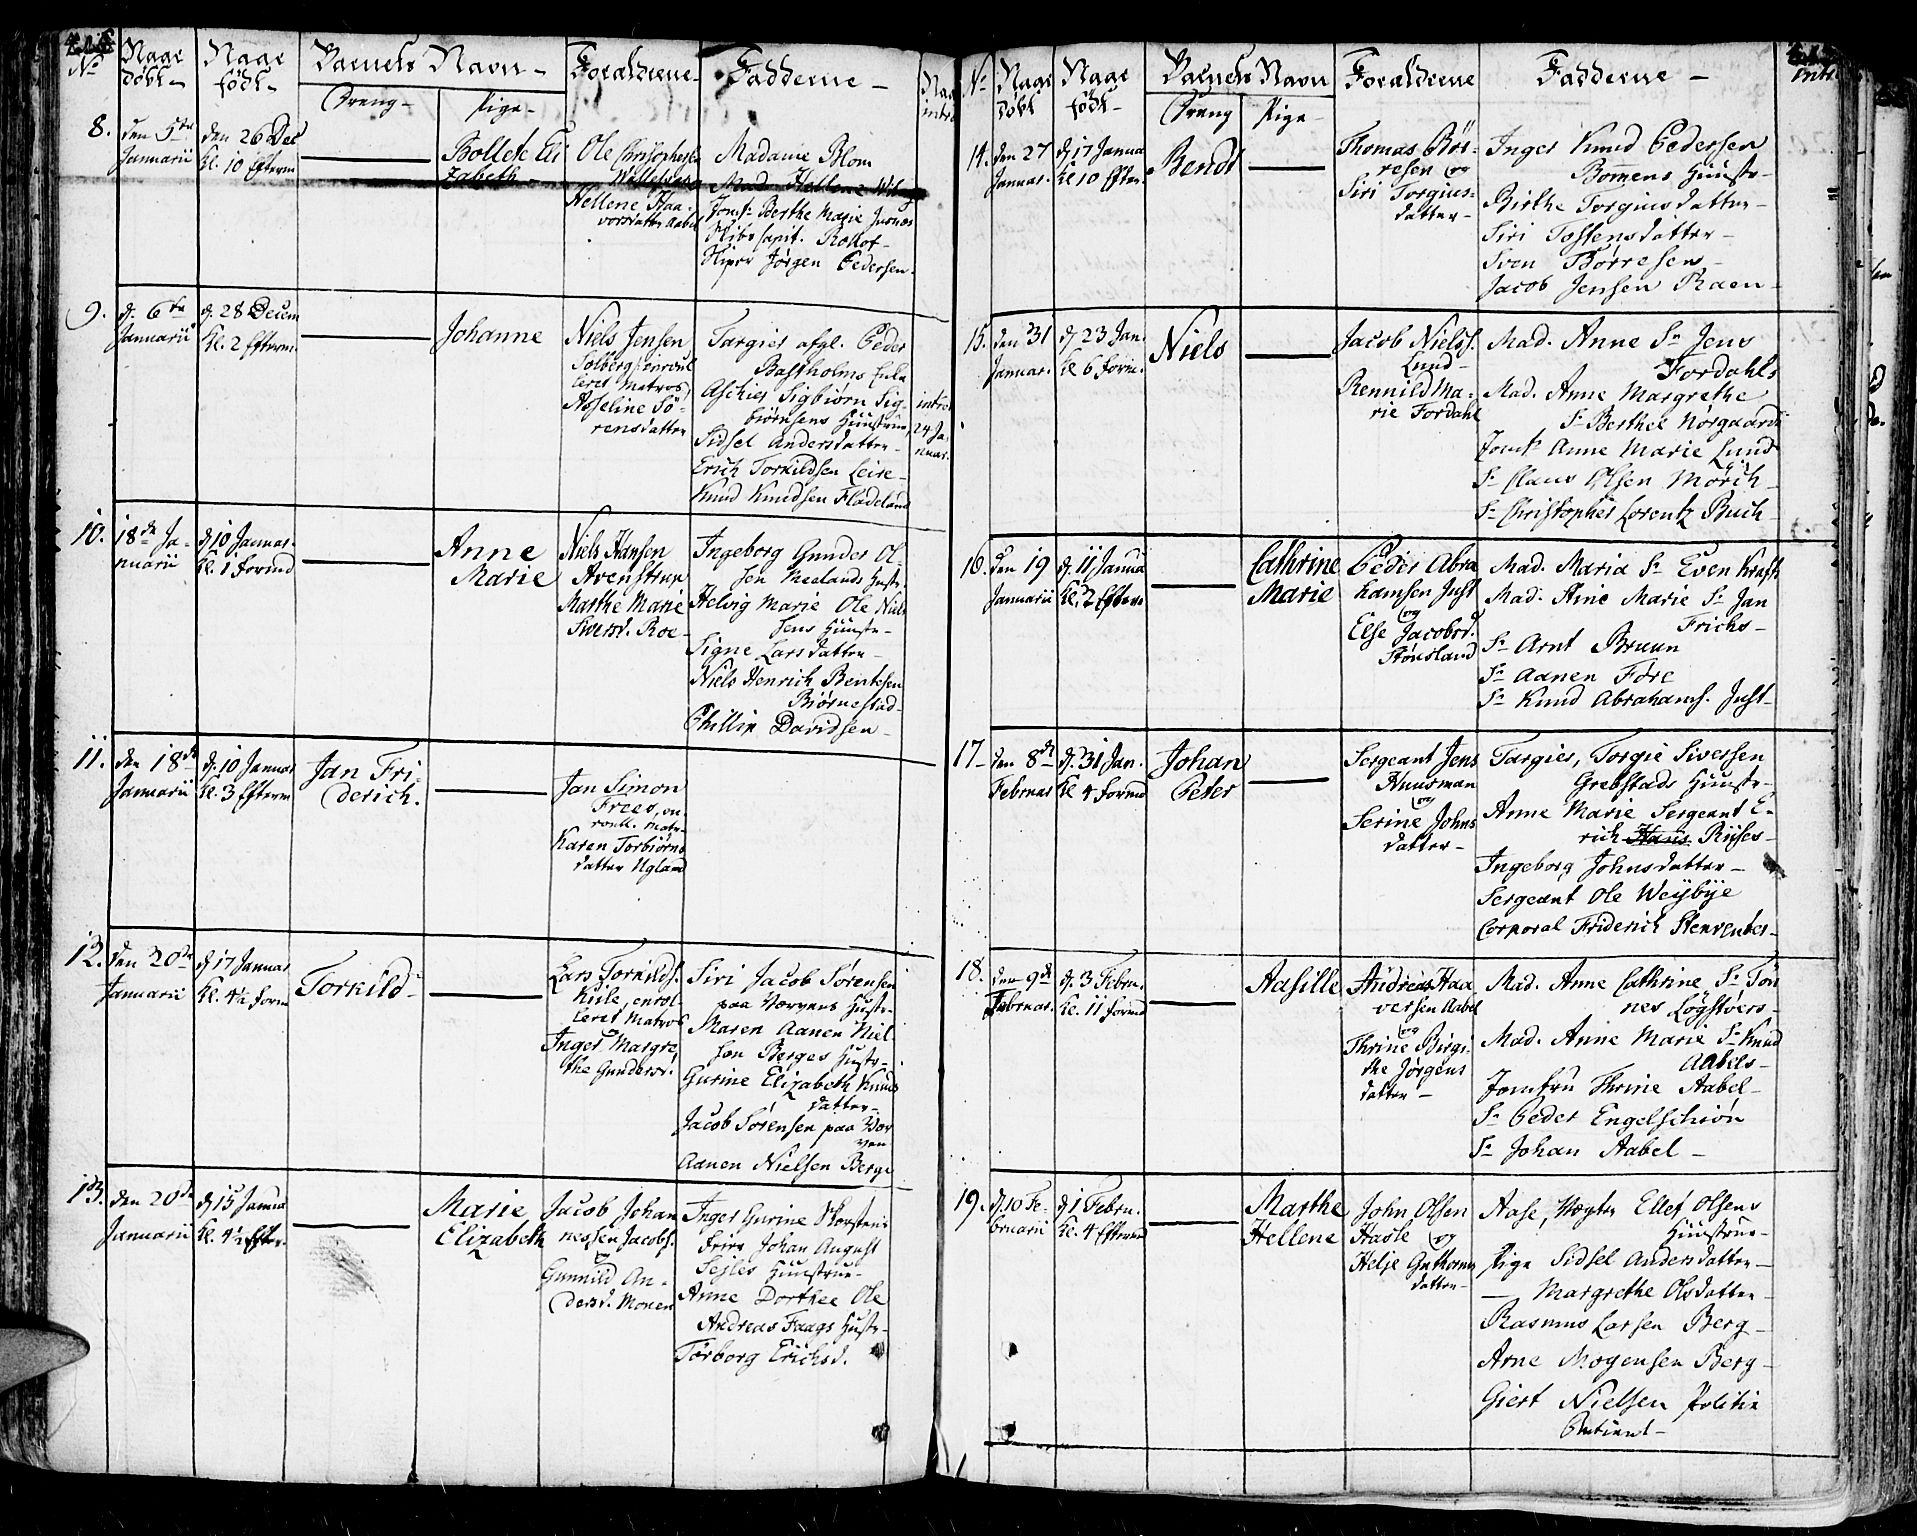 No
Naar døbt
Naar født
Barnets Navn
Dreng
Pige
Forældrene
Fadderne
8.
den 5te Januarii
den 26 Dec Kl. 10 Efterm
Bollete Eli
zabeth
Ole Christophers
Hellene Haa
vorsdatter Aabel
Madame Blom
Mad. Hellene
Jomf. Berthe Marie Juenæs
Skibs Capit. Roelof
Skipr Jørgen Pedersen
9.
d. 6te Januarii
d. 28 Decem
Kl. 2 Efterm.
Johanne
Niels Jensen
Solberg, enroul
leret Matros
Asseline Sö-
rensdatter
Targier afgl. Peder
Bastholms Enke
Aschier Sigbiørn Sig-
biørnsens Huustrue
Sidsel Andersdatter
Erich Torkildsen Leire
Knud Knudsen Flødeland
introd
24 Ja-
nuar.
10.
18de Ja-
nuarii
d. 10 Januar.
Kl. 1 Formd
Anne
Marie
Niels Hansen
Avenstrup
Marthe Marie
Siversd. Roe
Ingeborg Gunder Ol-
sen Mealands Hustr.
Helvig Marie Ole Niel
sens Huustr.
Signe Larsdatter
Niels Henrich Bentsen
Biørnestad
Phillip Davidsen
11.
den 18de
Januarii
d. 10 Januar
Kl. 3 Efterm
Jan Fri-
derich.
Jan Simon
Frees, en
roull. Matr.
Karen Torbiørns
datter Ugland
12.
den 20de
Januarii
d. 17 Januar
Kl. 4½ Form
Torkild
Lars Torkilds.
Kiile, enrol
leret Matros
Inger Margre
the Gundersd.
Siri Jacob Sørensen
paa Værvens Hustr.
Maren Aanen Niel-
sen Berges Hustr.
Gurine Elizabeth Knuds
datter
Jacob Sørensen paa Vær
ven
Aanen Nielsen Berge
13.
den 20de
Januarii
d. 15 Janua
Kl. 4½ Efter.
Marie
Elizabeth
Jacob Johan
nessen Jacobs.
og
Gunnild An-
dersd. Monen
Inger Gurine Thorstens
Johan August
Sejles Huustrue
Anne Dorthee Ole
Andreas Faags Hustr.
Torborg Erichsd.
No
Naar døbt
Naar født
Barnets Navn
Dreng
Pige
Forældrene
Fadderne
Intr.
14.
den 27
Januar.
d. 17 Janua
Kl 10 Efter.
Bendt
Thomas Bör-
resen og
Siri Torgius-
datter
Inger Knud Pedersen
Bomens Huustr.
Birthe Torgiusdatter
Siri Tostensdatter
Sven Børresen
Jacob Jensen Raen
15.
den 31
Januar.
d. 23 Jan.
Kl 6 Form.
Niels
Jacob Niels.
Lund
Rennild Ma-
rie Fordahl
Mad. Anne Sr Jens
Fordahls
Mad. Anne Margrethe
Sr Berthel Nørgaards
Jomfr Anne Marie Lund
Sr Claus Olsen Mörch
Sr Christopher Lorentz Buch
16.
den 19
Januarii
d. 11 Janua
Kl. 2 Efterm
Cathrine
Marie
Peder Abra
hamsen Just
og
Else Jacobsd.
Stønsland
Mad. Maria Sr Even Kraft
Mad. Ane Marie Sr Jan
Frichs
Sr Arnt Bruun
Sr Aanen Före
Sr Knud Abrahams. Just
17.
den 8de
Februar
d. 31 Jan.
Kl 4 Formd
Johan
Peter
Sergeant Jens
Huusman
og
Serine Johns
datter
Targier, Torgie Siversen
Grebstads Huustr.
Anne Marie Sergeant E-
rich Hans Riises
Ingeborg Johnsdatter
Sergeant Ole Weybye
Corporal Friderich Stenvenber
18.
den 9de
Februar.
d. 3 Febru.
Kl. 11 Formd
Aasille
Andreas Haa
versen Aabel
og
Thrine Birgi-
the Jörgens
datter
Mad. Anne Cathrine Sr Tøn
nes Løgstøers
Mad. Anne Marie Sr Knud
Aabels
Jomfru Thrine Aabel
Sr Peder Engelschiøn
Sr Johan Aabel
19.
d. 10 Fe-
bruarii
d. 1 Febru.
Kl. 4 Efterm
Marthe
Hellene
John Olsen
Hasle og
Helje Guthorms
datter
Aase, Vægter Ellef Olsens
Huustrue
Pige Sidsel Andersdatter
— Margrethe Olsdatter
Rasmus Larsen Berg
Arne Mogensen Berg
Giert Nielsen Politie
Betient